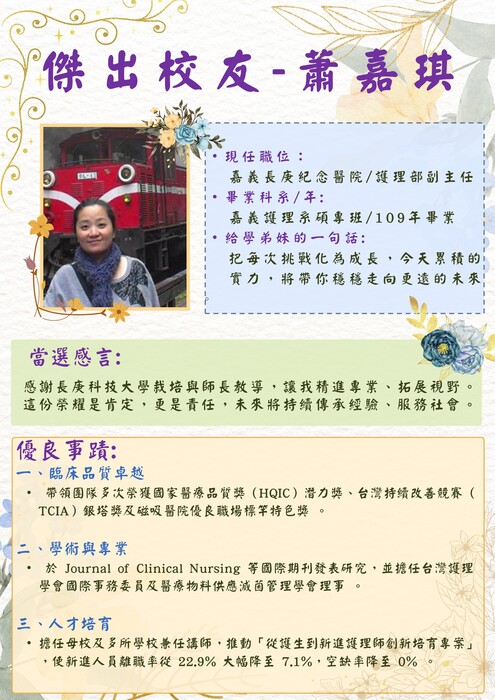 傑出校友-蕭嘉琪
• 現任職位：
嘉義長庚紀念醫院/護理部副主任
• 畢業科系/年:
嘉義護理系碩專班/109年畢業
• 給學弟妹的一句話:
把每次挑戰化為成長，今天累積的
實力，將帶你穩穩走向更遠的未來
。
當選感言:
感謝長庚科技大學栽培與師長教導，讓我精進專業、拓展視野。
這份榮耀是肯定，更是責任，未來將持續傳承經驗、服務社會。
優良事蹟:
一、臨床品質卓越
• 帶領團隊多次榮獲國家醫療品質獎（HQIC）潛力獎、台灣持續改善競賽（
TCIA）銀塔獎及磁吸醫院優良職場標竿特色獎 。
二、學術與專業
• 於 Journal of Clinical Nursing 等國際期刊發表研究，並擔任台灣護理
學會國際事務委員及醫療物料供應滅菌管理學會理事 。
三、人才培育
• 擔任母校及多所學校兼任講師，推動「從護生到新進護理師創新培育專案」
，使新進人員離職率從 22.9% 大幅降至 7.1%，空缺率降至 0% 。